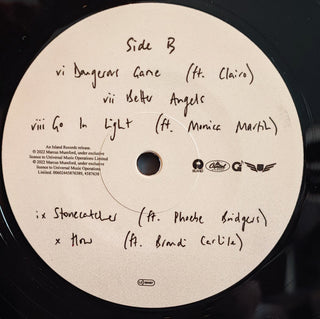 Side B
vi Dangerous Game (ft. Clairo)
vii Better Angels
viii Go In Light (ft. Monica Martin)
An Island Records release.
℗ 2022 Marcus Mumford, under exclusive
licence to Universal Music Operations Limited
© 2022 Marcus Mumford, under exclusive
licence to Universal Music Operations
Limited.
ISLAND
Capitol
ix Stonecatcher (ft. Phoebe Bridgers)
x How (ft. Brandi Carlile)